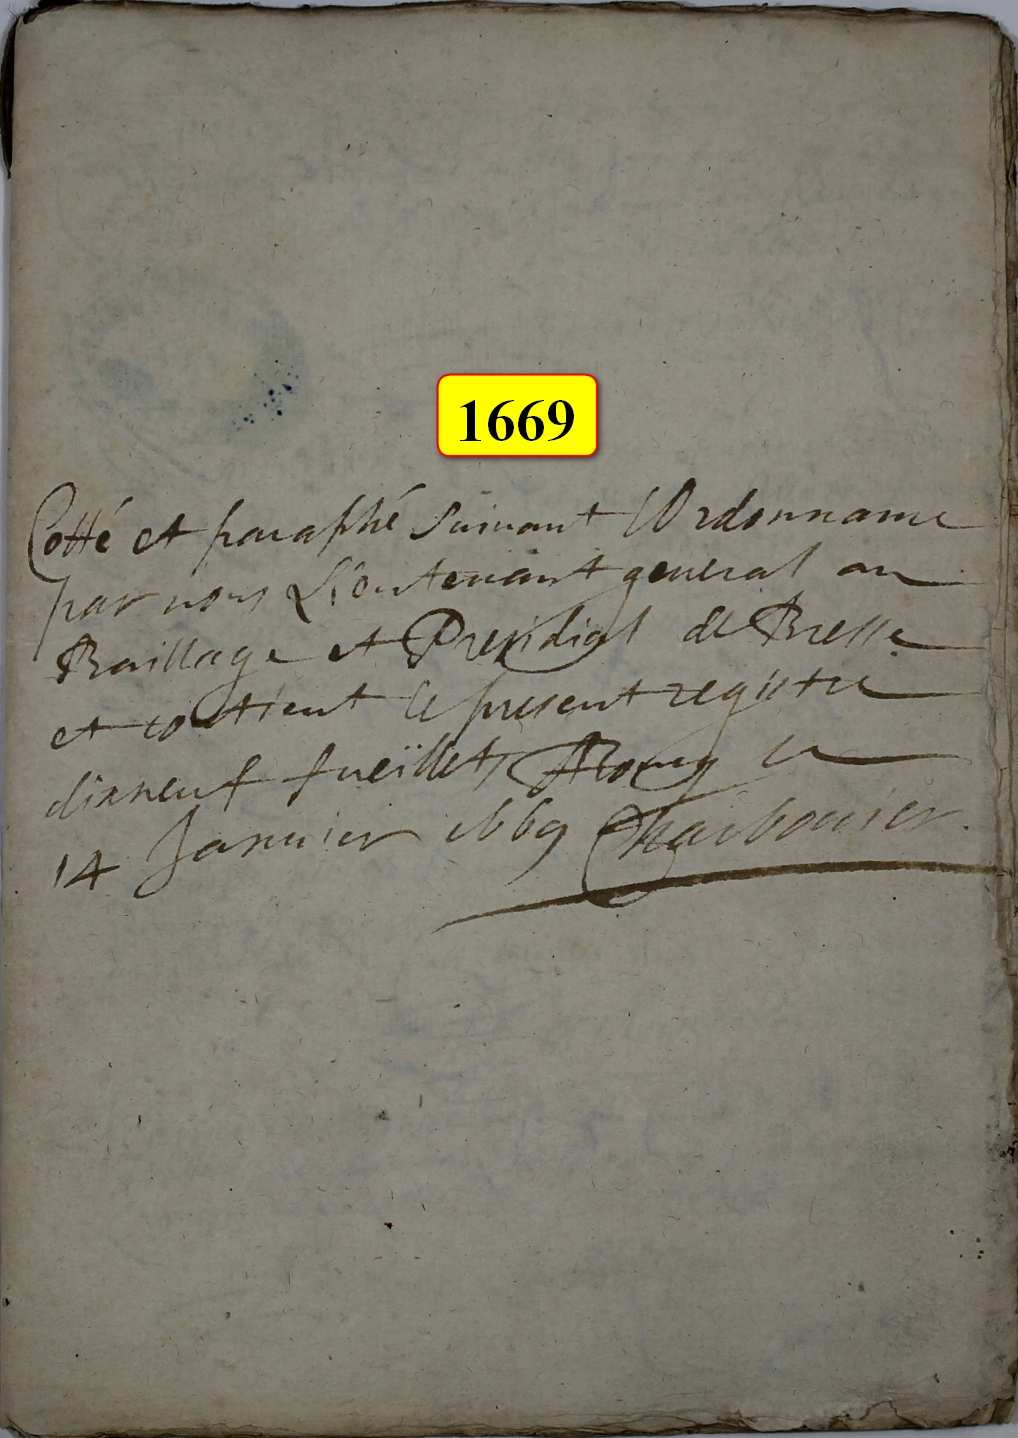 1669
Cotté et paraphé suivant lOrdonnance
par nous Lieutenant general au
Baillage et Presidial de Bresse
et contient le present registre
dixneuf fueillets ABourg le
14 Januier 1669 Charbonier.